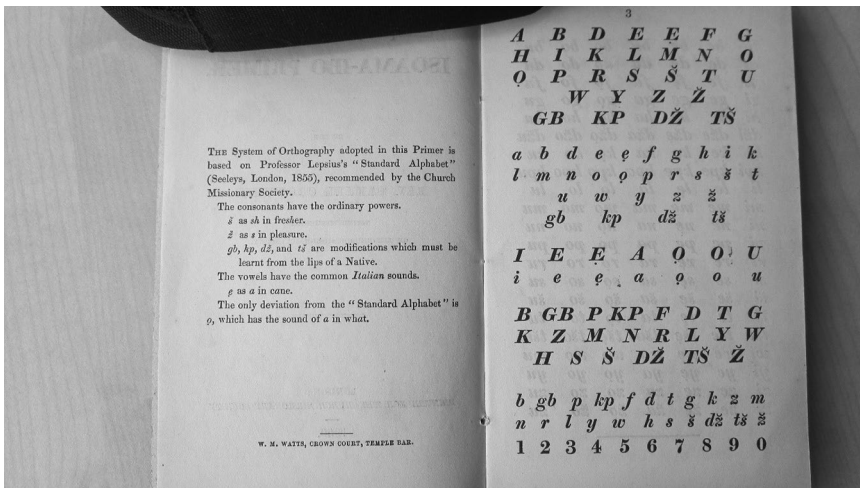 THE System of Orthography adopted in this Primer is
based on Professor Lepsius's "Standard Alphabet"
(Seeleys, London, 1855), recommended by the Church
Missionary Society.
The consonants have the ordinary powers.
š as sh in fresher.
ž as s in pleasure.
gb, kp, dž, and tš are modifications which must be
learnt from the lips of a Native.
The vowels have the common Italian sounds.
ẹ as a in cane.
The only deviation from the "Standard Alphabet" is
ọ, which has the sound of a in what.
W. M. WATTS, CROWN COURT, TEMPLE BAR.
3
A B D E Ẹ F G
H I K L M N O
Ọ P R S Š T U
W Y Z Ž
GB KP DŽ TŠ
a b d e ẹ f g h i k
l m n o ọ p r s š t
u w y z ž
gb kp dž tš
I E Ẹ A Ọ O U
i e ẹ a ọ o u
B GB P KP F D T G
K Z M N R L Y W
H S Š DŽ TŠ Ž
b gb p kp f d t g k z m
n r l y w h s š dž tš ž
1 2 3 4 5 6 7 8 9 0